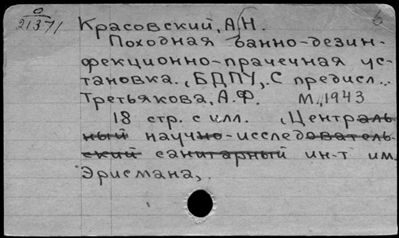 0
21371
6
Красовский, А.Н.
Походная банно-дезин-
фекционно-прачечная ус-
тановка. (БДПУ), С предисл...
Третьякова, А.Ф. М., 1943
18 стр. с илл. (Централь-
ный научно-исследователь-
ский санитарный ин-т им.
Эрисмана).